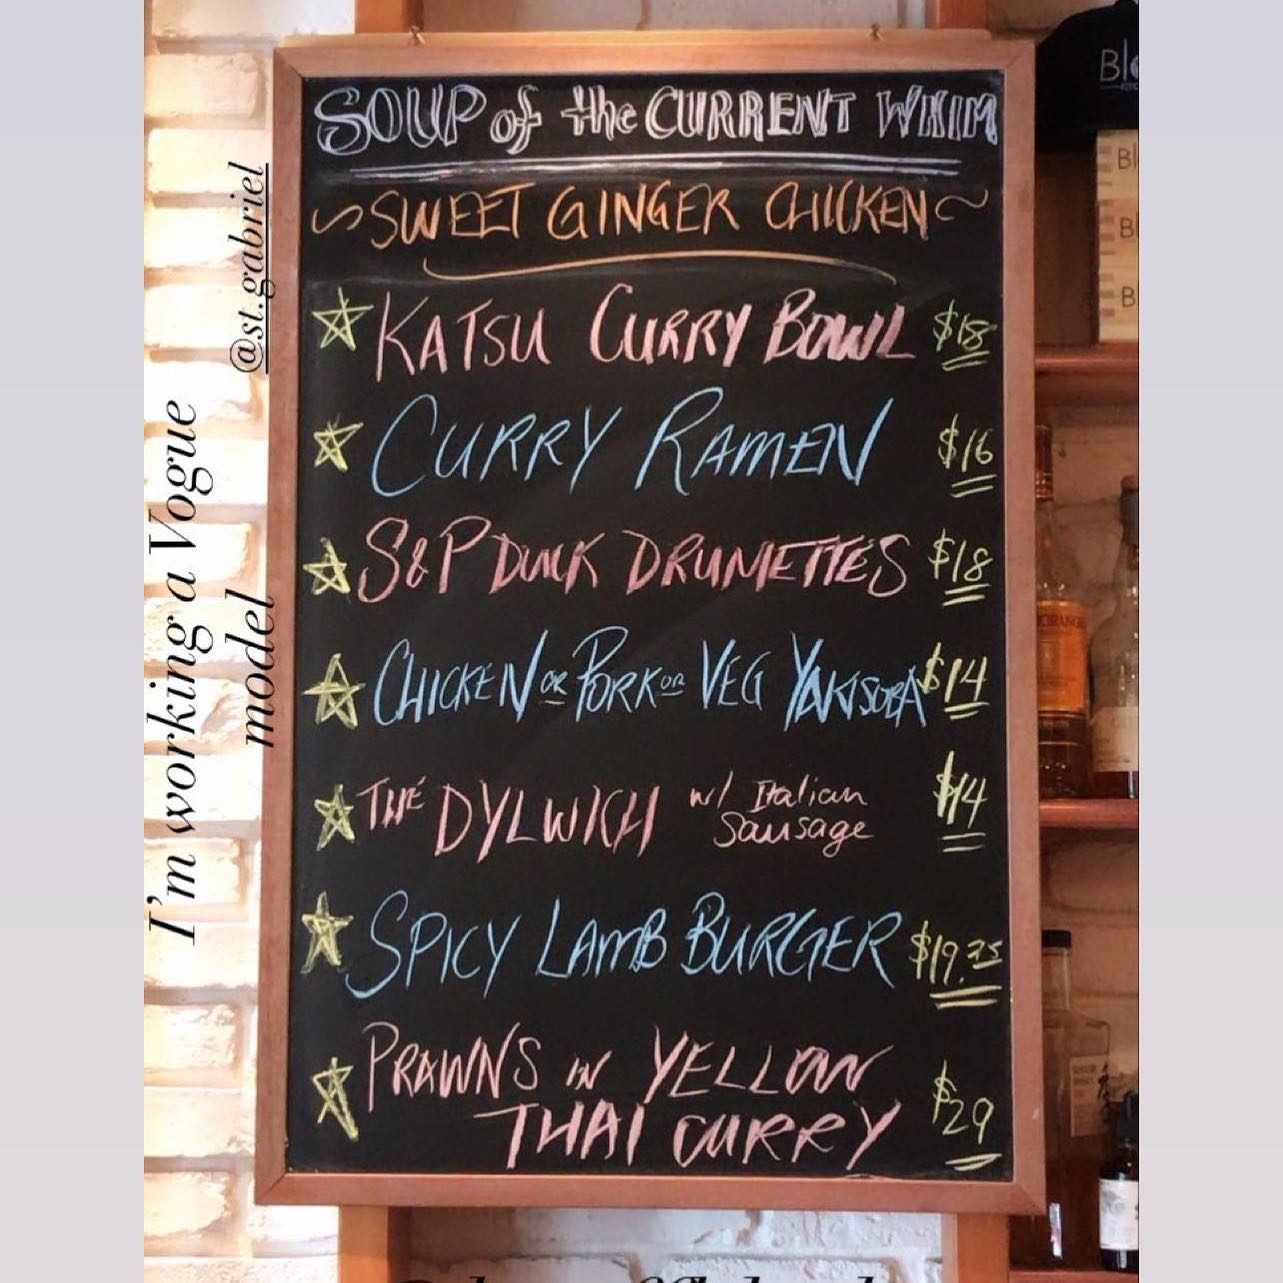 SOUP of the CURRENT WHIM
~SWEET GINGER CHICKEN~
☆ KATSU CURRY BOWL $18
☆ CURRY RAMEN $16
☆ S&P DUCK DRUMETTES $18
☆ CHICKEN OR PORK OR VEG YAKISOBA $14
☆ THE DYLWICH w/ Italian $14
Sausage
☆ SPICY LAMB BURGER $19.75
☆ PRAWNS IN YELLOW
THAI CURRY $29
@st.gabriel
I'm working a Vogue
model